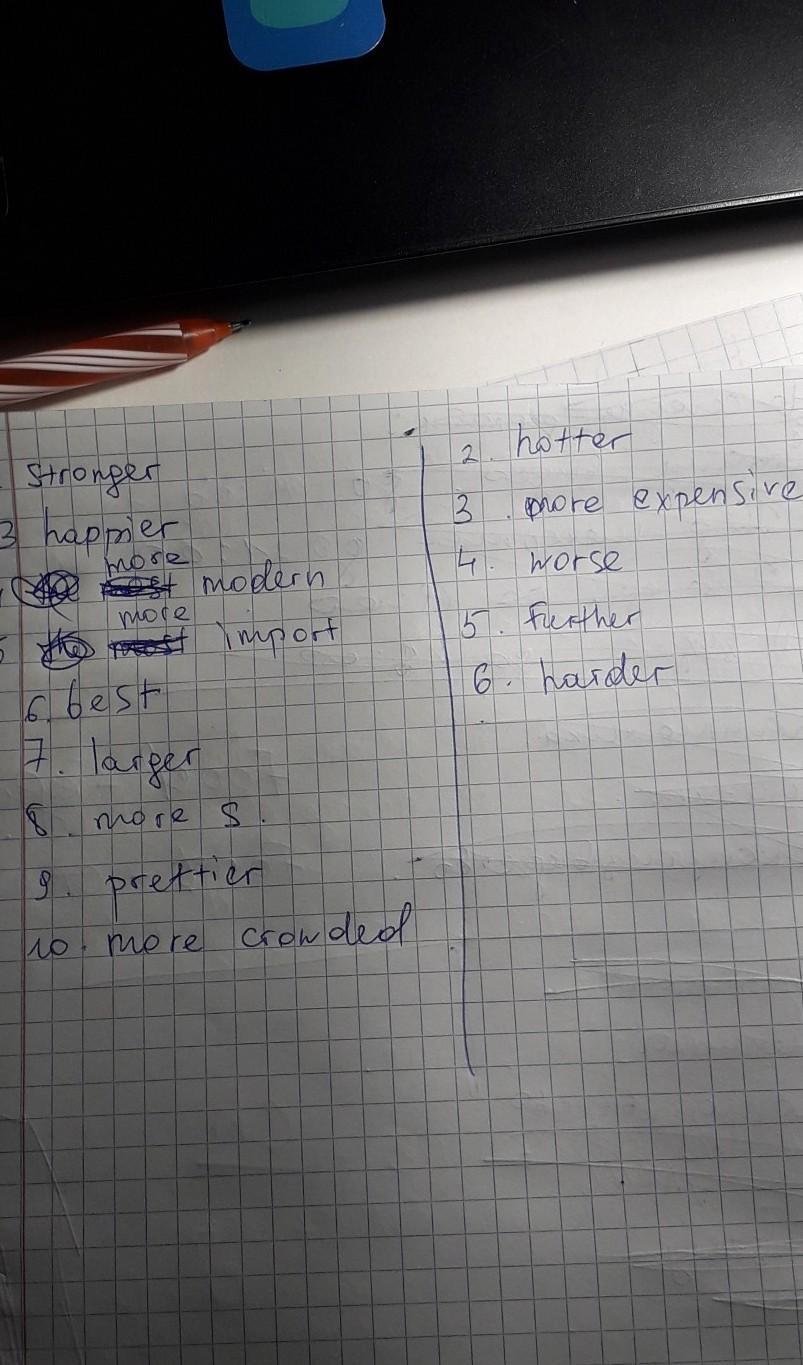 stronger
3 happier
more
modern
more
5 import
6. best
7. larger
8. more s.
9. prettier
10. more crowded
2. hotter
3. more expensive
4. worse
5. further
6. harder